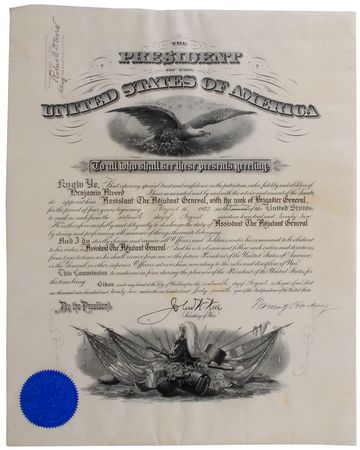 THE
PRESIDENT
OF THE
UNITED STATES OF AMERICA
To all who shall see these presents greeting:
Know Ye, That reposing special trust and confidence in the patriotism, valor, fidelity and abilities of
Benjamin Alvord I have nominated and by and with the advice and consent of the Senate
do appoint him Assistant The Adjutant General, with the rank of Brigadier General,
for the period of four years beginning August 16, 1922 United States
to rank as such from the day of August nineteen hundred and twenty two
He is therefore carefully and diligently to discharge the duty of Assistant The Adjutant General
by doing and performing all manner of things thereunto belonging.
And I do strictly charge and require all Officers and Soldiers under his command to be obedient
to his orders as Assistant The Adjutant General And he is to observe and follow such orders and directions
from time to time as he shall receive from me or the future President of the United States of America,
or the General or other superior Officers set over him, according to the rules and discipline of War.
This Commission to continue in force during the pleasure of the President of the United States for
the time being.
Given under my hand at the City of Washington, this day of August in the year of our Lord
one thousand nine hundred and twenty two and in the one hundred and forty seventh year of the Independence of the United States.
By the President:
Secretary of War.